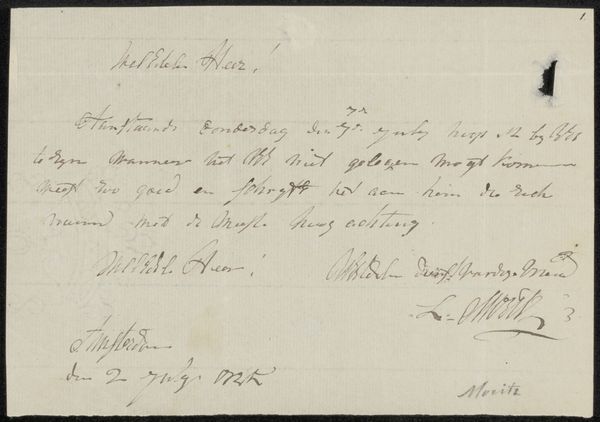 1
WelEdele Heer!
Aanstaande donderdag den 7en July hoop ik by UEd
te zyn wanneer het UEd niet gelegen mogt komen
weest zoo goed en schryft het aan hem die zich
noemd met de meeste hoog achting
WelEdele Heer!
UEd dienstvaardige Vriend
L. Moritz
Amsterdam
den 2 July
Moritz